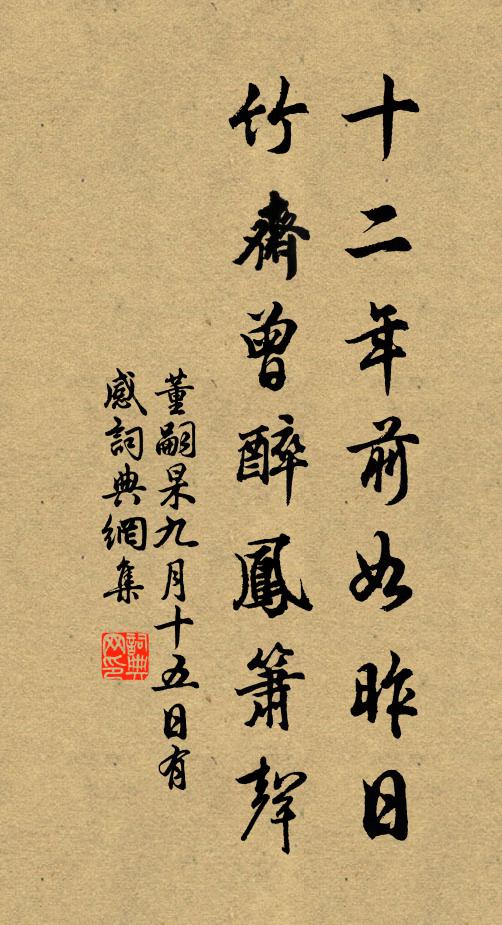 十二年前如昨日
竹齋曾醉鳳簫聲
董嗣杲九月十五日有
感詞典網集
詞典
网印